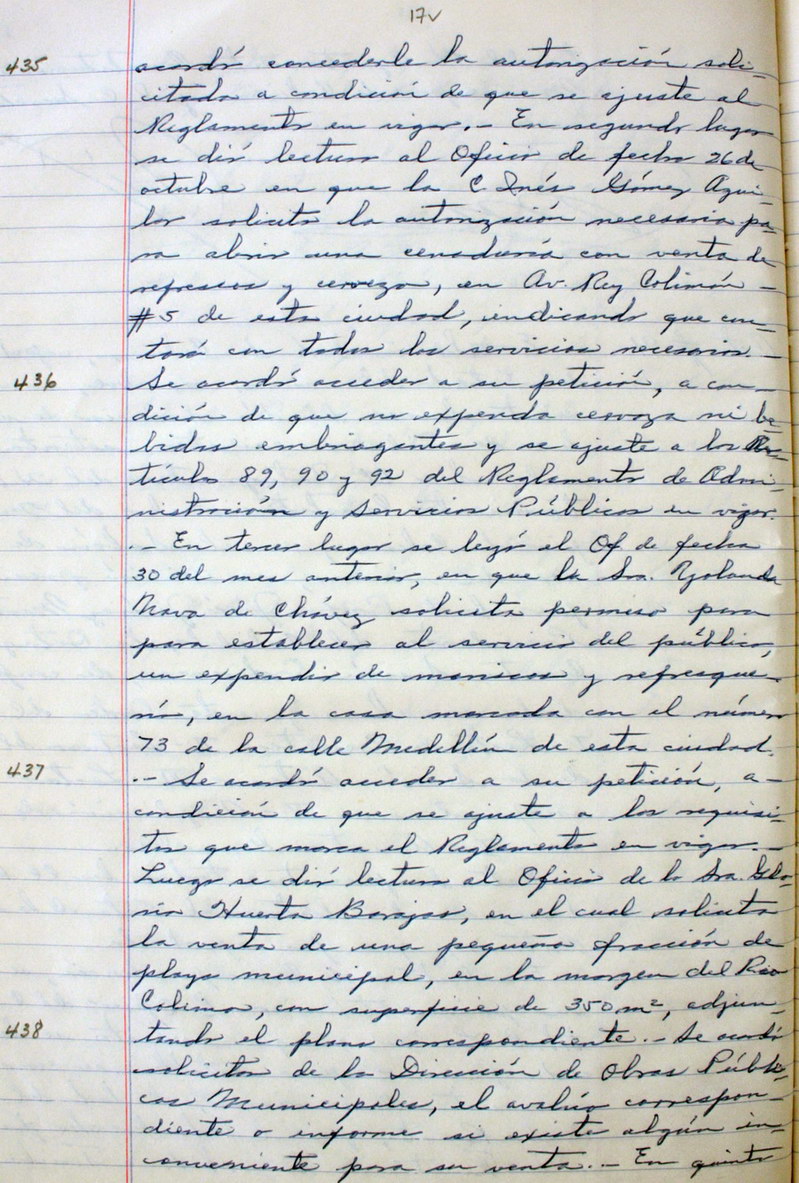 17v
435 acordó concederle la autorización soli-
citada a condición de que se ajuste al
Reglamento en vigor.- En segundo lugar
se dió lectura al Oficio de fecha 26 de
octubre en que la C. Inés Gómez Agui-
lar solicita la autorización necesaria pa-
ra abrir una cenaduría con venta de
refrescos y cerveza, en Av. Rey Colimán -
#5 de esta ciudad, indicando que con-
tará con todos los servicios necesarios.-
436 Se acordó acceder a su petición, a con-
dición de que no expenda cerveza ni be-
bidas embriagantes y se ajuste a los Ar-
tículos 89, 90 y 92 del Reglamento de Admi-
nistración y Servicios Públicos en vigor.
.- En tercer lugar se leyó el Of. de fecha
30 del mes anterior, en que la Sra. Yolanda
Nava de Chávez solicita permiso para
para establecer al servicio del público,
un expendio de mariscos y refresque-
ría, en la casa marcada con el número
73 de la calle Medellín de esta ciudad.
437 .- Se acordó acceder a su petición, a -
condición de que se ajuste a los requisi-
tos que marca el Reglamento en vigor.-
Luego se dió lectura al Oficio de la Sra. Glo-
ria Huerta Barajas, en el cual solicita
la venta de una pequeña fracción de
playa municipal, en la margen del Río
Colima, con superficie de 350 m², adjun-
438 tando el plano correspondiente.- Se acordó
solicitar de la Dirección de Obras Públi-
cas Municipales, el avalúo correspon-
diente o informe si existe algún in-
conveniente para su venta.- En quinto